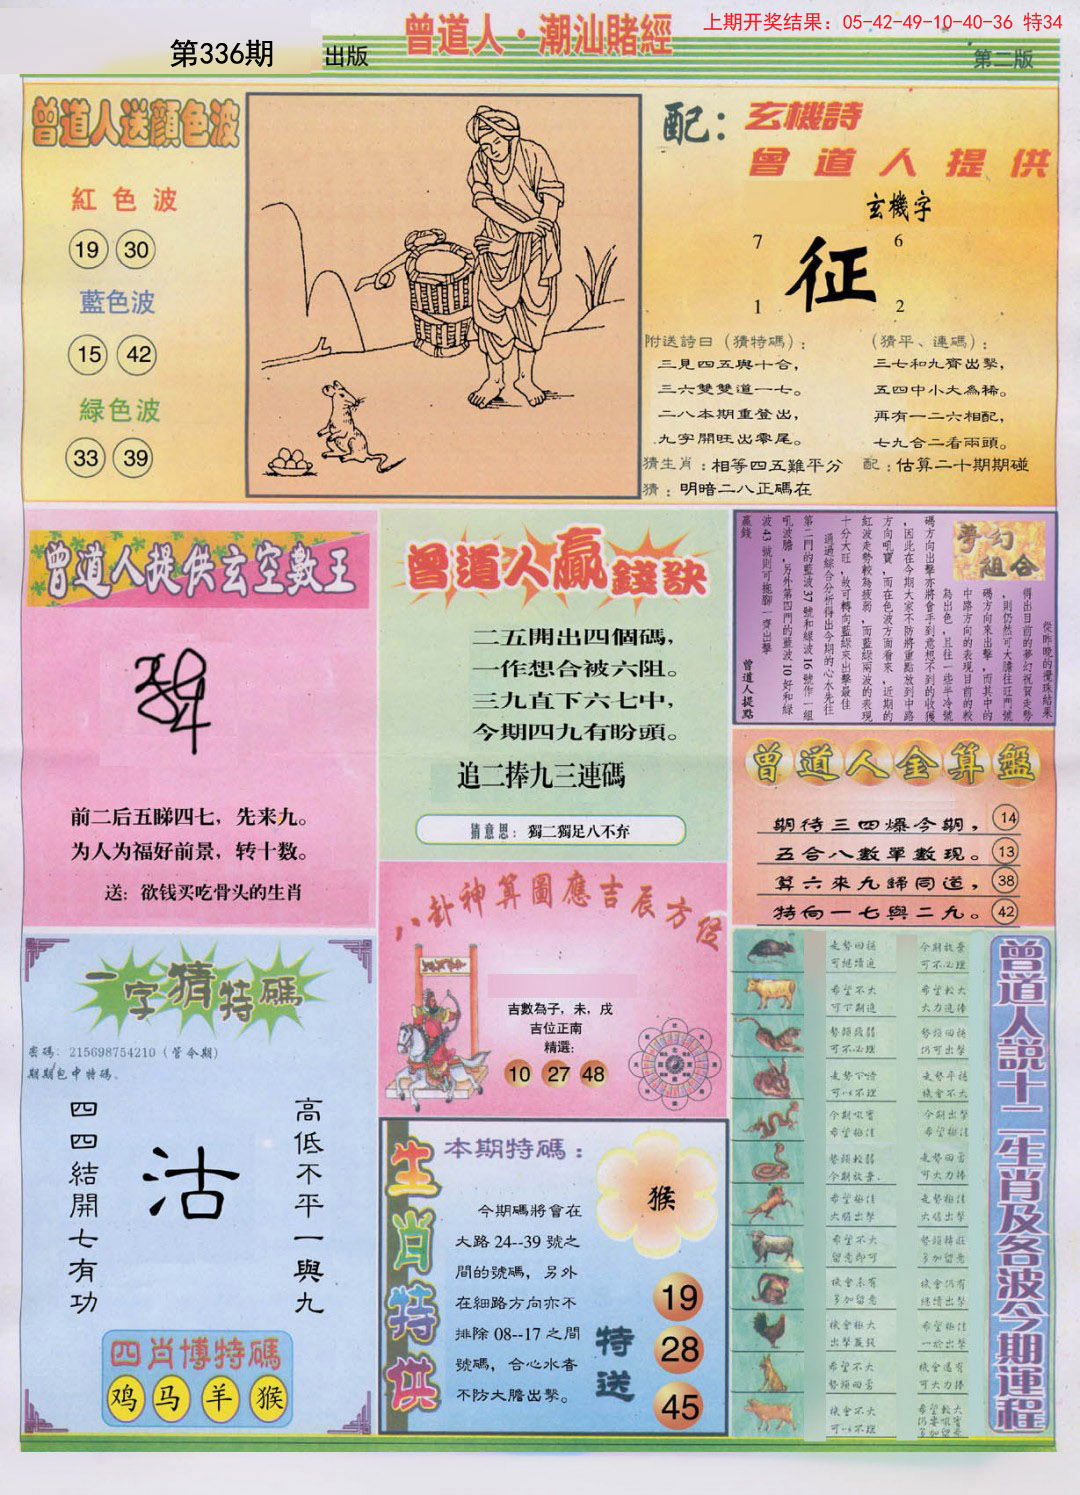 上期开奖结果：05-42-49-10-40-36 特34
第336期
出版
曾道人·潮汕賭經
第二版
曾道人送顏色波
紅色波
19 30
藍色波
15 42
緑色波
33 39
配：
玄機詩
曾道人提供
玄機字
7 6
征
1 2
附送詩曰（猜特碼）：
三見四五與十合，
三六雙雙道一七。
二八本期重登出，
九字開旺出零尾。
（猜平、連碼）：
三七和九齊出擊，
五四中小大為稀。
再有一二六相配，
七九合二看兩頭。
猜生肖：相等四五難平分
配：估算二十期期碰
猜：明暗二八正碼在
曾道人提供玄空數王
前二后五睇四七，先来九。
为人为福好前景，转十数。
送：欲钱买吃骨头的生肖
曾道人贏錢訣
二五開出四個碼，
一作想合被六阻。
三九直下六七中，
今期四九有盼頭。
追二捧九三連碼
猜意思：獨二獨足八不弃
夢幻
組合
從昨晚的攪珠結果
得出目前的夢幻祝賀走勢
，則仍然可大膽往旺門號
碼方向來出擊，而其中的
中路方向的表現目前的較
為出色，且往一些半冷號
碼方向出擊亦將會手到意想不到的收獲
，因此在今期大家不防將重點放到中路
方向吼寶，而在色波方面看來，近期的
紅波走勢較為疲弱，而藍綠兩波的表現
十分大旺，故可轉向藍綠來出擊最佳
通過綜合分析得出今期的心水先往
第二門的藍波37號和綠波16號作一組
吼波膽，另外第四門的藍波10好和綠
波43號則可拖腳一齊出擊
贏錢
曾道人提點
曾道人金算盤
期待三四爆今期， 14
五合八數單數現。 13
算六來九歸同道， 38
特向一七與二九。 42
八卦神算圖應吉辰方位
吉數為子，未，戌
吉位正南
精選：
10 27 48
一字猜特碼
密碼：215698754210（管令期）
期期包中特碼。
四四結開七有功
沽
高低不平一與九
四肖博特碼
鸡 马 羊 猴
生肖特供
本期特碼：
今期碼將會在
大路 24--39 號之
間的號碼，另外
在細路方向亦不
排除 08--17 之間
號碼，合心水者
不防大膽出擊。
猴
特送
19
28
45
曾道人説十二生肖及各波今期運程
走勢回穩 今期放棄
可繼續追 可不必理
希望不大 希望較大
可下期追 大力追捧
勢頭疲弱 勢頭回穩
可不必理 仍可出擊
走勢下唔 走勢平穩
可以不理 機會不大
今期吼寶 今期出擊
希望極佳 希望極佳
勢頭較弱 走勢回雷
今期放棄. 可大力捧
希望極佳 走勢極佳
大膽出擊 大膽出擊
希望不大 勢頭轉旺
留意即可 多加留意
機會未有 機會仍有
多加留意 繼續出擊
機會極大 希望極佳
出擊贏錢 一於出擊
希望不大 機會還有
勢頭回雷 可大力捧
機會不大 希望較大
可以不理 仍要吼寶
多加留意